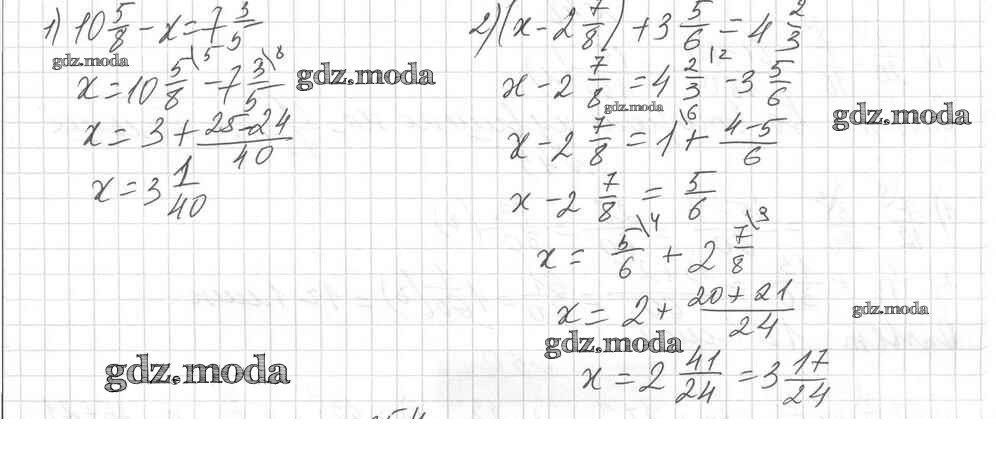 1) 10 5/8 - x = 7 3/5
gdz.moda
x = 10 5/8 \5 - 7 3/5 \8
gdz.moda
x = 3 + 25-24/40
x = 3 1/40
2) (x - 2 7/8) + 3 5/6 = 4 2/3
x - 2 7/8 = 4 2/3 |2 - 3 5/6
gdz.moda
gdz.moda
x - 2 7/8 = 1 \6 + 4-5/6
x - 2 7/8 = 5/6
x = 5/6 \4 + 2 7/8 \3
x = 2 + 20+21/24
gdz.moda
gdz.moda
x = 2 41/24 = 3 17/24
gdz.moda